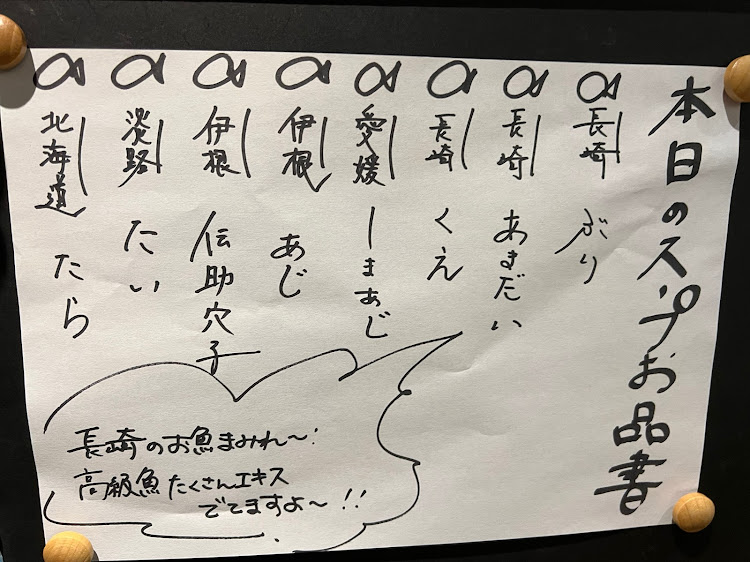 本日のスープお品書
長崎 ぶり
長崎 あまだい
長崎 くえ
愛媛 しまあじ
伊根 あじ
伊根 伝助穴子
淡路 たい
北海道 たら
長崎のお魚まみれ〜!
高級魚たくさんエキス
でてますよ〜!!